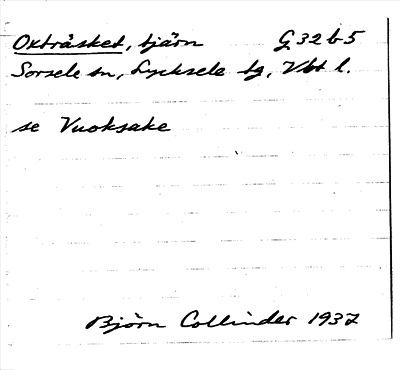 Oxträsket, tjärn G32b5
Sorsele sn, Lycksele tg, Vbt l.
se Vuoksake
Björn Collinder 1937